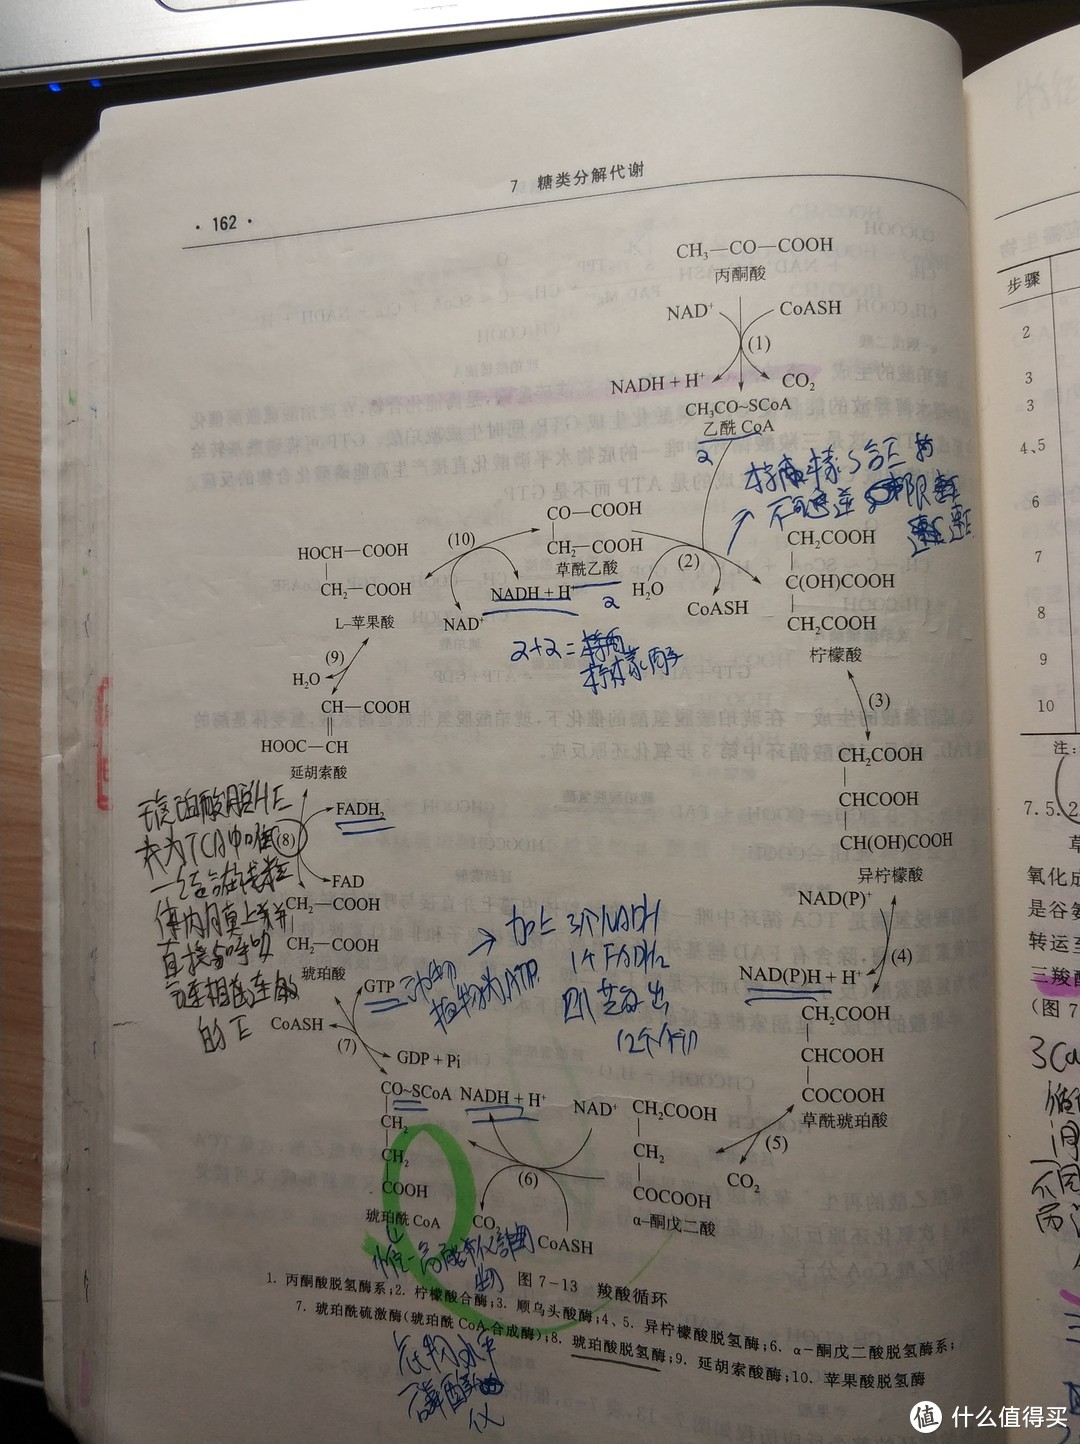 7 糖类分解代谢
· 162 ·
CH₃—CO—COOH
丙酮酸
NAD⁺
CoASH
(1)
NADH + H⁺
CO₂
CH₃CO~SCoA
乙酰 CoA
2
不可逆
CO—COOH
CH₂—COOH
草酰乙酸
2
(10)
(2)
HOCH—COOH
CH₂—COOH
L-苹果酸
NAD⁺
NADH + H⁺
H₂O
CoASH
CH₂COOH
C(OH)COOH
CH₂COOH
柠檬酸
2+2=
(9)
H₂O
(3)
CH—COOH
HOOC—CH
延胡索酸
CH₂COOH
CHCOOH
CH(OH)COOH
异柠檬酸
FADH₂
(8)
FAD
琥珀酸脱H E
为TCA中唯
一结合在线粒
体内膜上并
直接与呼吸
链相连
的E
CH₂—COOH
CH₂—COOH
琥珀酸
NAD(P)⁺
(4)
NAD(P)H + H⁺
GTP
动物
植物为ATP
→ 加上3个NADH
1个FADH₂
CoASH
(7)
GDP + Pi
CH₂COOH
CHCOOH
COCOOH
草酰琥珀酸
CO~SCoA
CH₂
CH₂
COOH
琥珀酰 CoA
NADH + H⁺
NAD⁺
(6)
CO₂
CoASH
CH₂COOH
CH₂
COCOOH
α-酮戊二酸
(5)
CO₂
图 7-13 羧酸循环
1. 丙酮酸脱氢酶系;2. 柠檬酸合酶;3. 顺乌头酸酶;4、5. 异柠檬酸脱氢酶;6. α-酮戊二酸脱氢酶系;
7. 琥珀酰硫激酶(琥珀酰 CoA 合成酶);8. 琥珀酸脱氢酶;9. 延胡索酸酶;10. 苹果酸脱氢酶
底物水平
磷酸化
步骤
2
3
3
4、5
6
7
8
9
10
注:
7.5.2
草
氧化成
是谷氨
转运至
三羧酸
(图 7
值 什么值得买